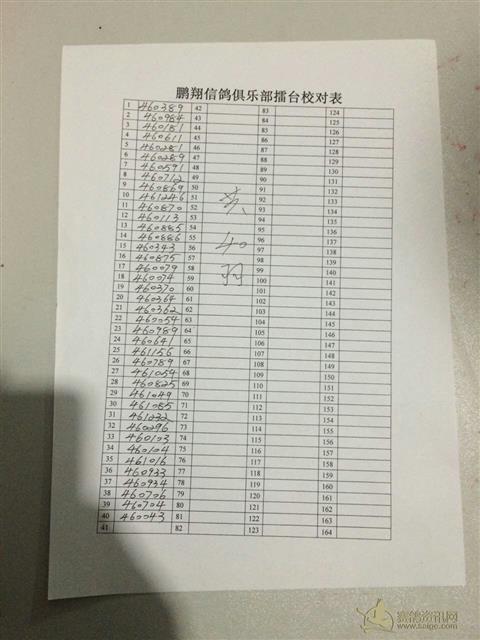 鹏翔信鸽俱乐部擂台校对表
1 460389 42 83 124
2 460984 43 84 125
3 460181 44 85 126
4 460611 45 86 127
5 460281 46 87 128
6 460289 47 88 129
7 460591 48 89 130
8 460712 49 90 131
9 460869 50 91 132
10 461246 51 92 133
11 460870 52 93 134
12 460113 53 94 135
13 460885 54 95 136
14 460886 55 96 137
15 460343 56 97 138
16 460875 57 98 139
17 460079 58 99 140
18 460074 59 100 141
19 460370 60 101 142
20 460364 61 102 143
21 460362 62 103 144
22 460054 63 104 145
23 460989 64 105 146
24 460641 65 106 147
25 461156 66 107 148
26 460789 67 108 149
27 461054 68 109 150
28 460825 69 110 151
29 461049 70 111 152
30 461085 71 112 153
31 461232 72 113 154
32 460296 73 114 155
33 460103 74 115 156
34 460104 75 116 157
35 461016 76 117 158
36 460933 77 118 159
37 460934 78 119 160
38 460706 79 120 161
39 460704 80 121 162
40 460043 81 122 163
41 82 123 164
共
40
羽
赛鸽资讯网
www.saige.com